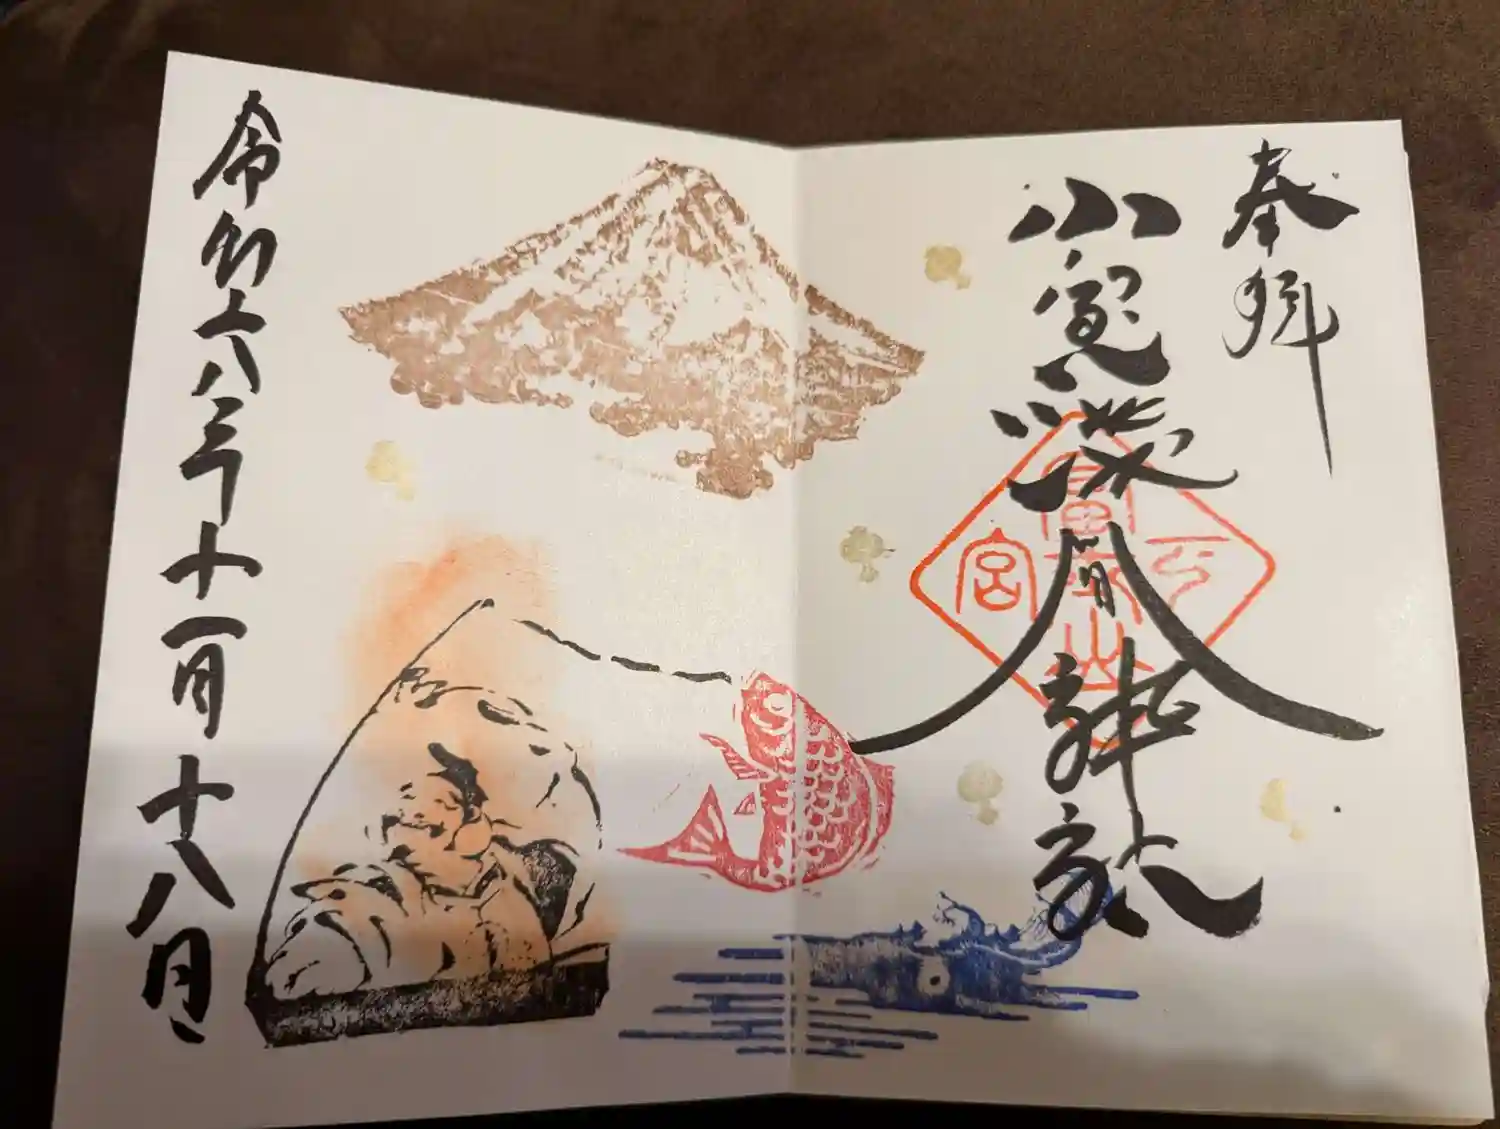 奉拝
小室浅間神社
富士山
下宮
令和六年十一月十八日